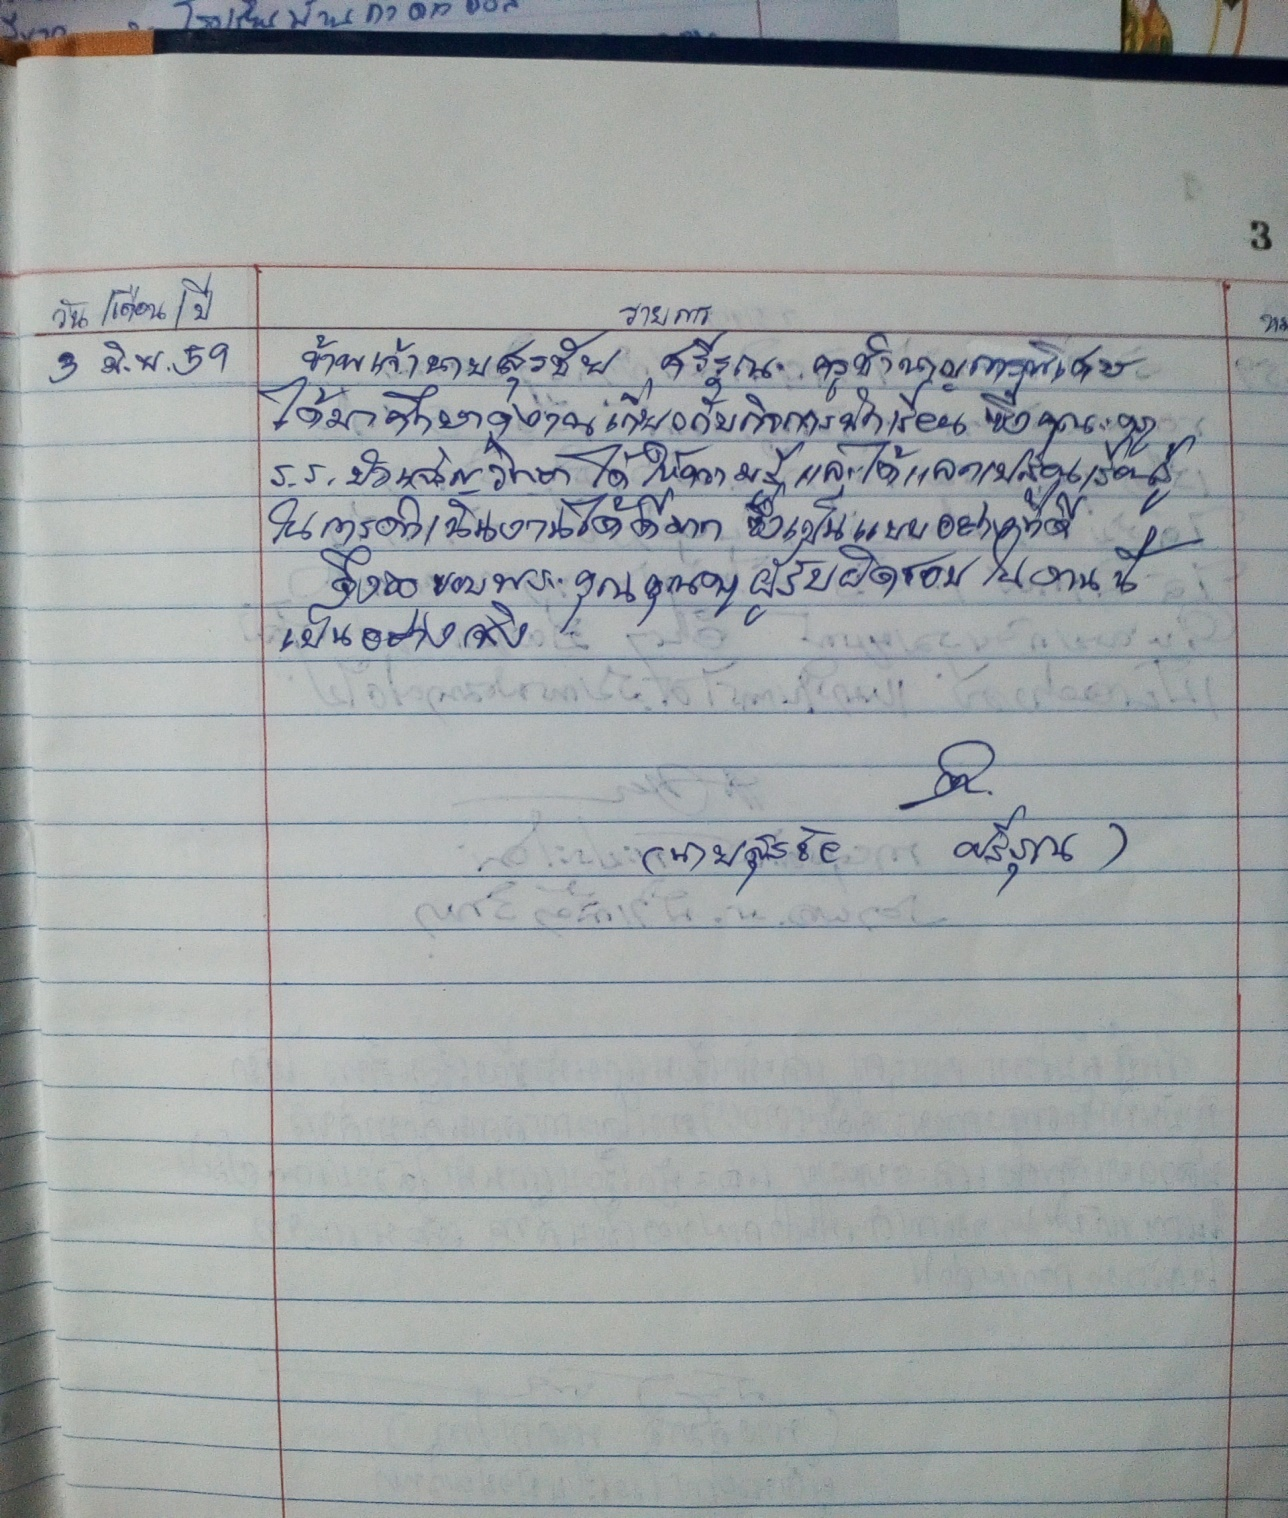 โรงเรียนบ้าน
3
วัน/เดือน/ปี รายการ
3 มิ.ย. 59 ข้าพเจ้านายสุรชัย ศรีรุณ ครูชำนาญการพิเศษ
ได้มาศึกษาดูงานเกี่ยวกับกิจการนักเรียน ซึ่งคณะครู
ร.ร. วิทยา ได้ให้ความรู้ และได้แลกเปลี่ยนเรียนรู้
ในการดำเนินงานได้ดีมาก ซึ่งเป็นแบบอย่างที่ดี
จึงขอขอบพระคุณคุณครูผู้รับผิดชอบในงานนี้
เป็นอย่างยิ่ง
(นายสุรชัย ศรีรุณ)